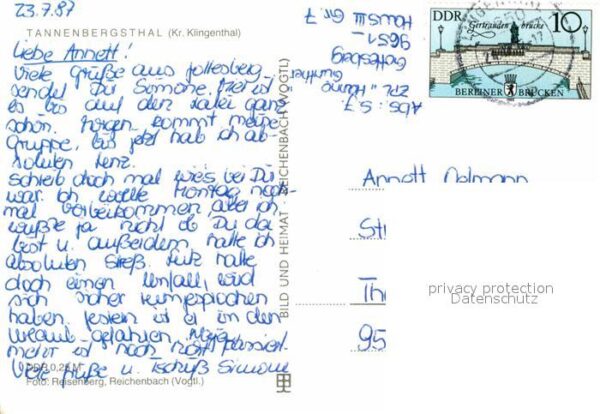 23.7.87
TANNENBERGSTHAL (Kr. Klingenthal)
Liebe Annett!
Viele Grüße aus Gottesberg
sendet Dir Simone. Hier ist
es bis auf den ganz
schön. Morgen kommt meine
Gruppe, bis jetzt hab ich ab-
soluten Lenz.
Schreib doch mal wie's bei Dir
war. Ich wollte Montag noch-
mal vorbeikommen, aber ich
wußte ja nicht ob Du da
bist u. außerdem hatte ich
absoluten Streß. Lutz hatte
doch einen Unfall, wird
sich sicher rumgesprochen
haben. Gestern ist er in den
gefahren. Naja,
mehr ist noch nicht passiert.
Viele Grüße u. Tschüß Simone
DDR 0,25 M
Foto: Reisenberg, Reichenbach (Vogtl.)
BILD UND HEIMAT · REICHENBACH (VOGTL)
Abs.: S. ?.
ZPL "Hanno
Günther"
Gottesberg
9651
Haus III Gr. 7
DDR
Gertraudenbrücke
10
BERLINER BRÜCKEN
Annett
St
Th
95
privacy protection
Datenschutz